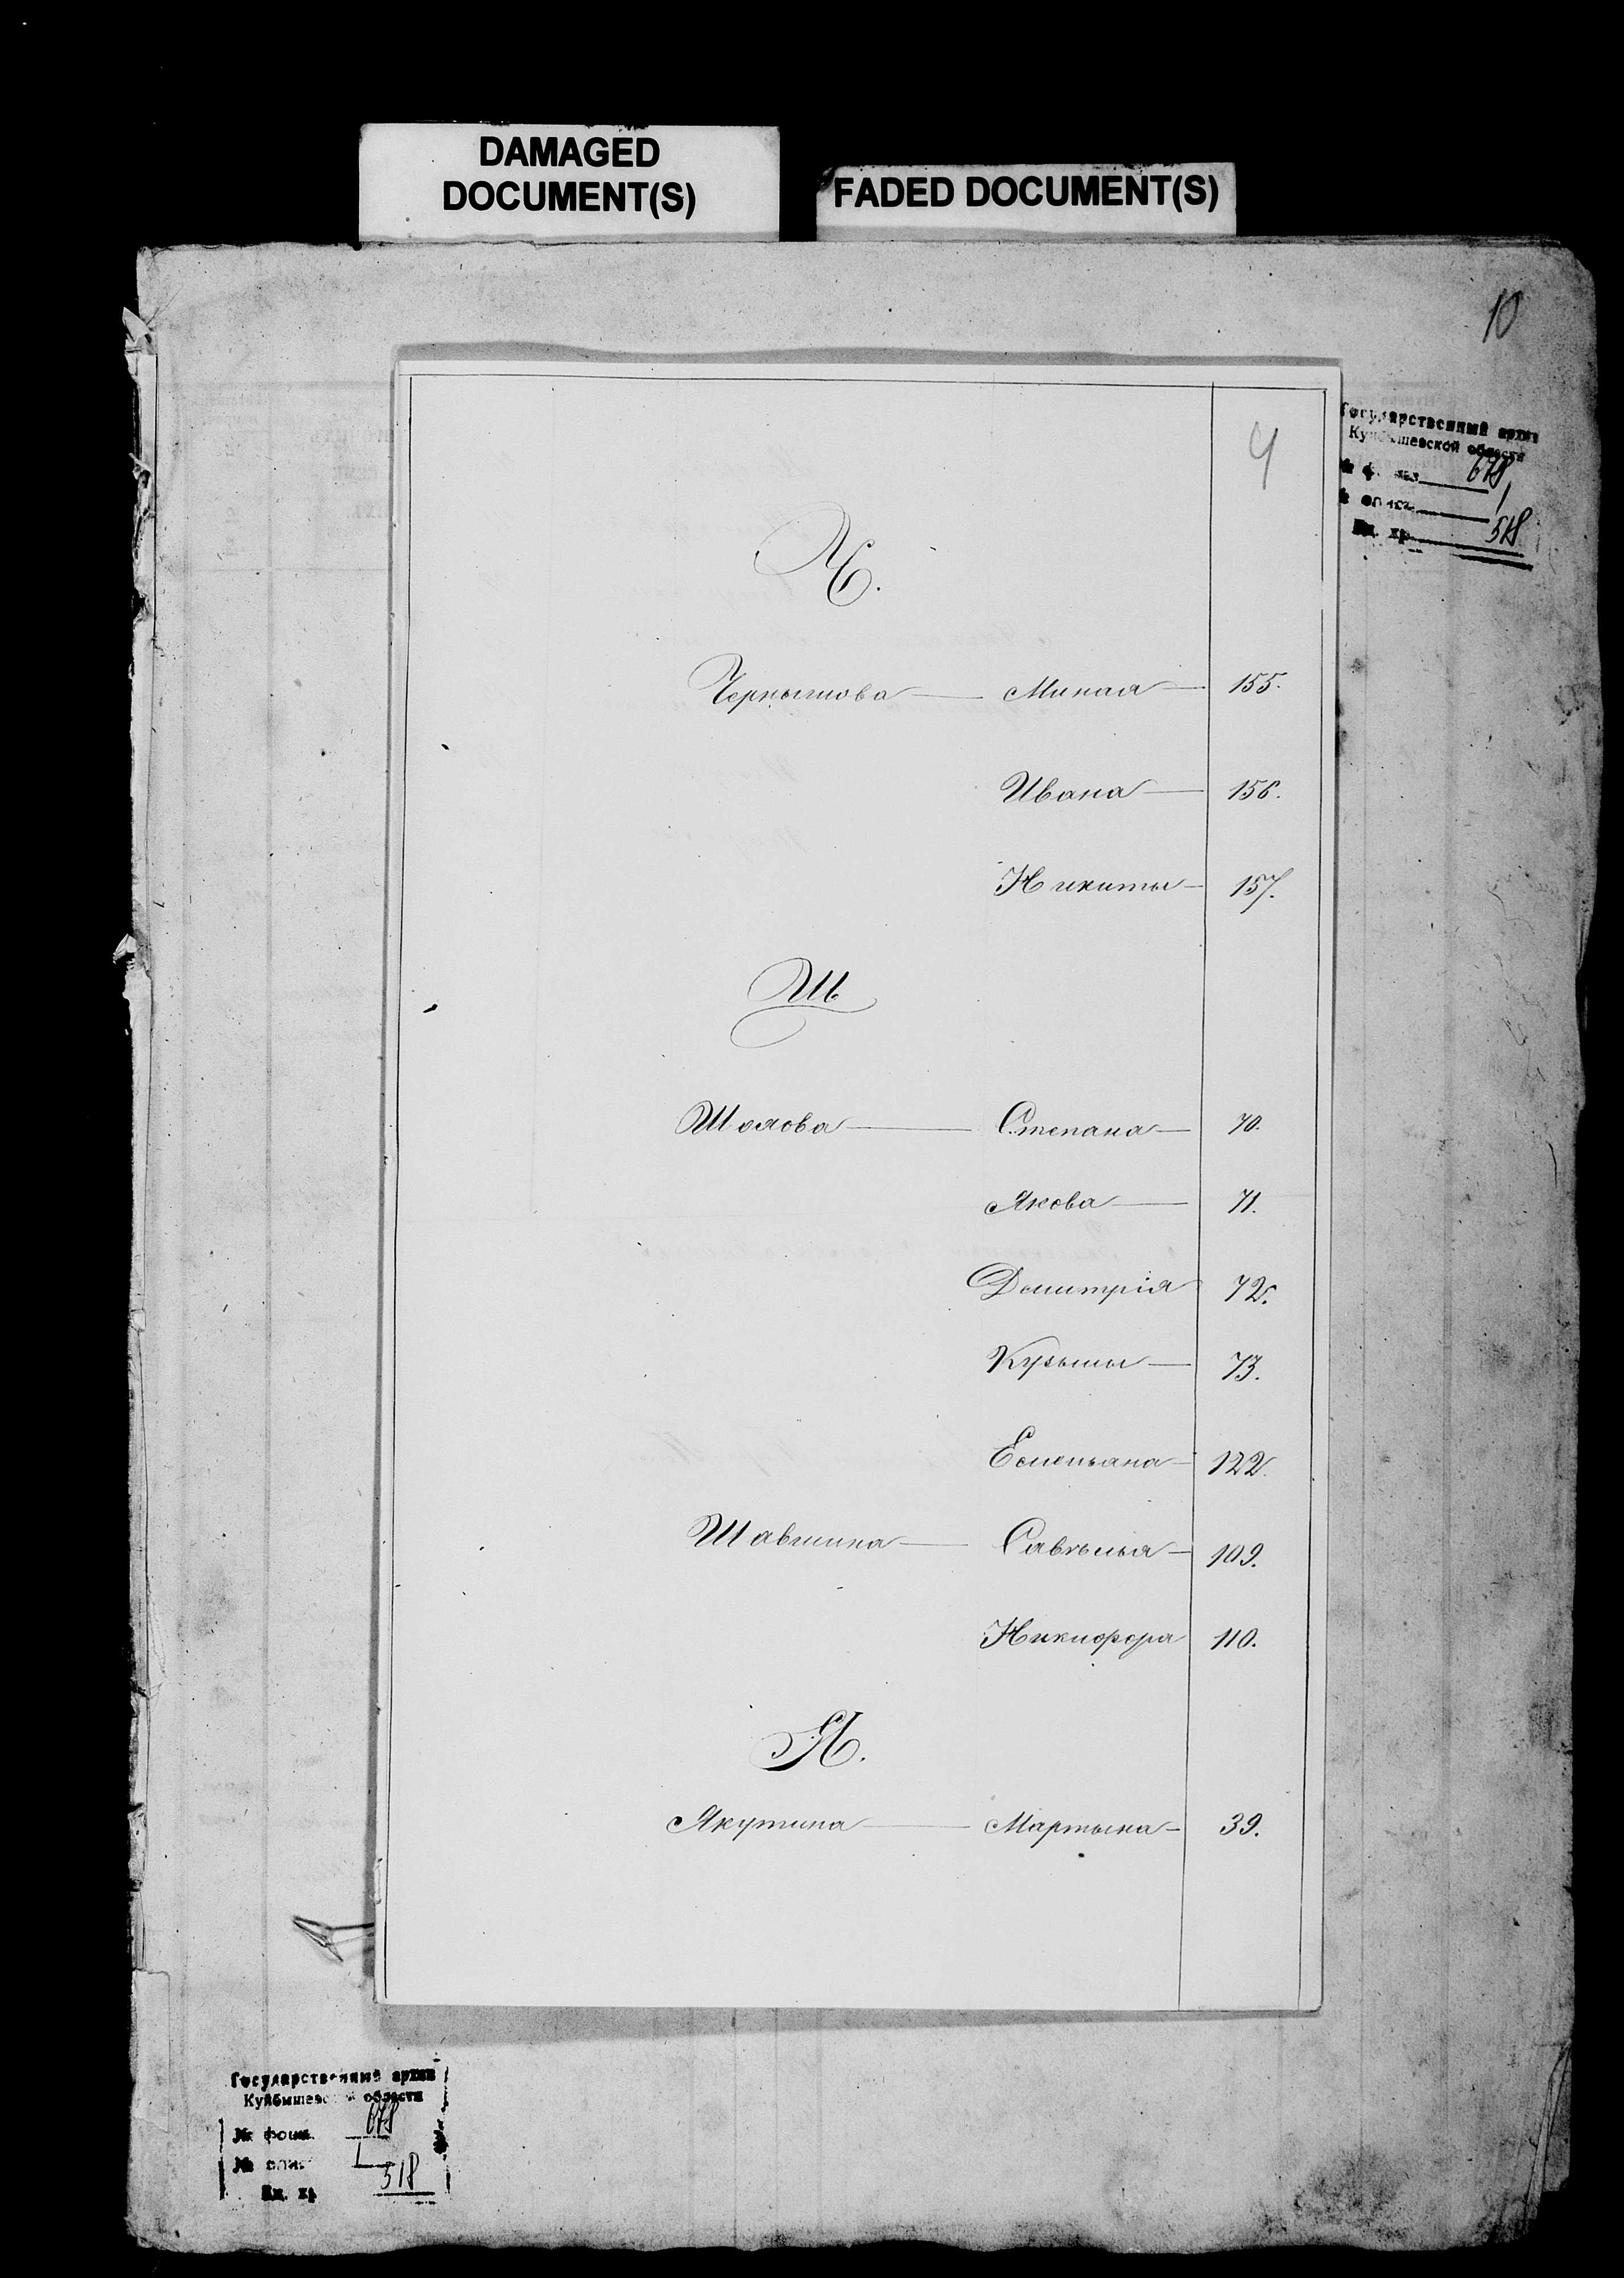 DAMAGED
DOCUMENT(S)
FADED DOCUMENT(S)
10
4
Государственный архив
Куйбышевской области
678
1
518
Ч.
Чернышова — Миная — 155.
Ивана — 156.
Никиты — 157.
Ш
Шолова — Степана — 70.
Якова — 71.
Демитрія 72.
Кузьмы — 73.
Емельяна — 122.
Шавшина — Савелья — 109.
Никифора 110.
Я.
Якутина — Мартына — 39.
Государственный архив
Куйбышевской области
№ фонд. 678
№ опис. 1
Ед. хр. 518